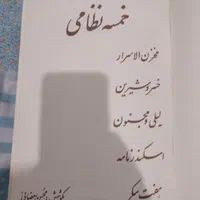 خمسه نظامی
مخزن الاسرار
خسرو شیرین
لیلی و مجنون
اسکندرنامه
هفت پیکر